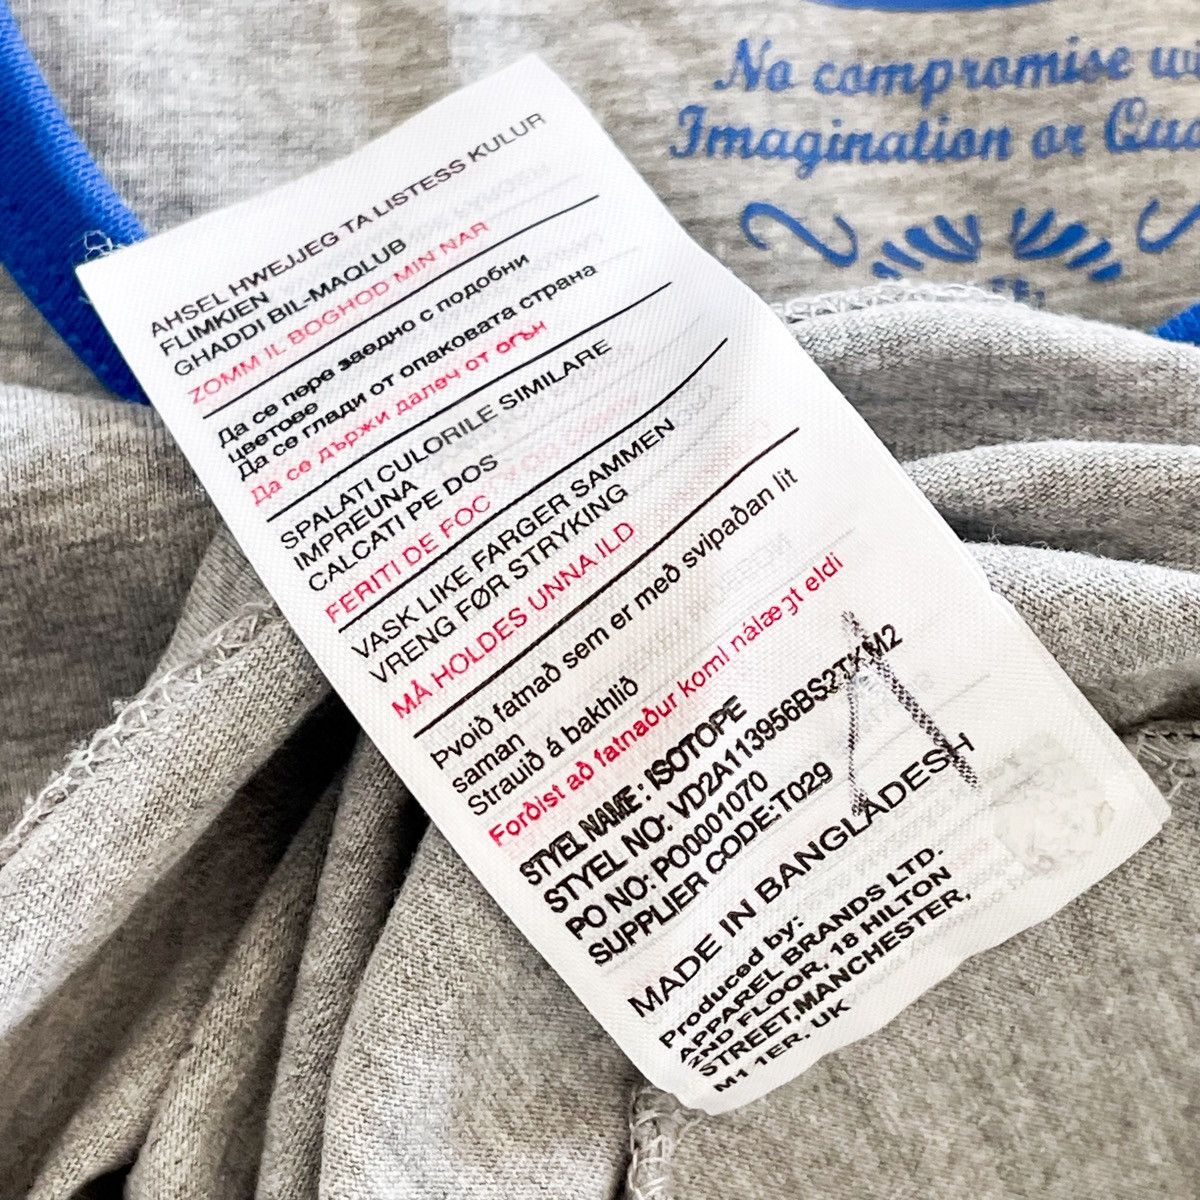 No compromise
Imagination or
AHSEL HWEJJEG TA LISTESS KULUR
FLIMKIEN
GHADDI BIL-MAQLUB
ZOMM IL BOGHOD MIN NAR
Да се пере заедно с подобни
цветове
Да се глади от опаковата страна
Да се държи далеч от огън
SPALATI CULORILE SIMILARE
IMPREUNA
CALCATI PE DOS
FERITI DE FOC
VASK LIKE FARGER SAMMEN
VRENG FØR STRYKING
MÅ HOLDES UNNA ILD
Þvoið fatnað sem er með svipaðan lit
saman
Strauið á bakhlið
Forðist að fatnaður komI nálægt eldi
STYEL NAME: ISOTOPE
STYEL NO: VD2A113956BS2TKM2
PO NO: PO0001070
SUPPLIER CODE:T029
MADE IN BANGLADESH
Produced by:
APPAREL BRANDS LTD.
2ND FLOOR, 18 HILTON
STREET,MANCHESTER,
M1 1ER. UK